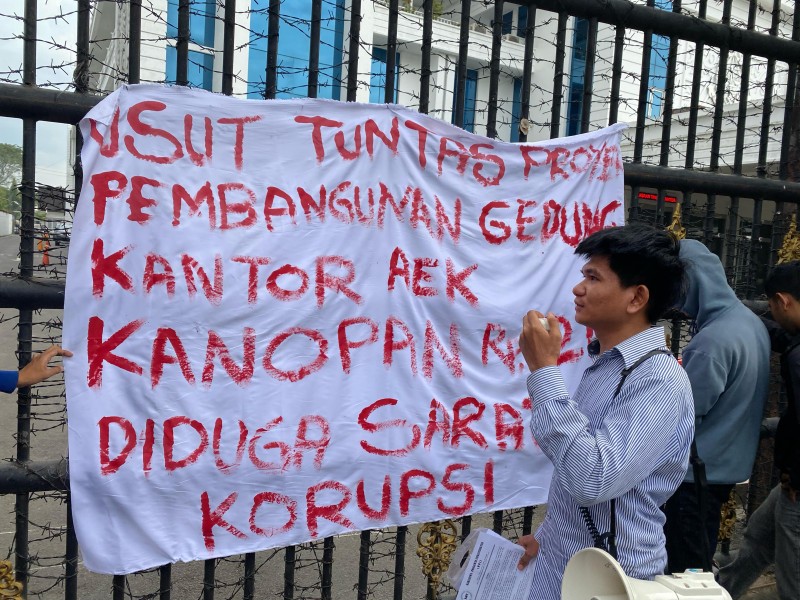 USUT TUNTAS PROYEK
PEMBANGUNAN GEDUNG
KANTOR AEK
KANOPAN
DIDUGA SARAT
KORUPSI